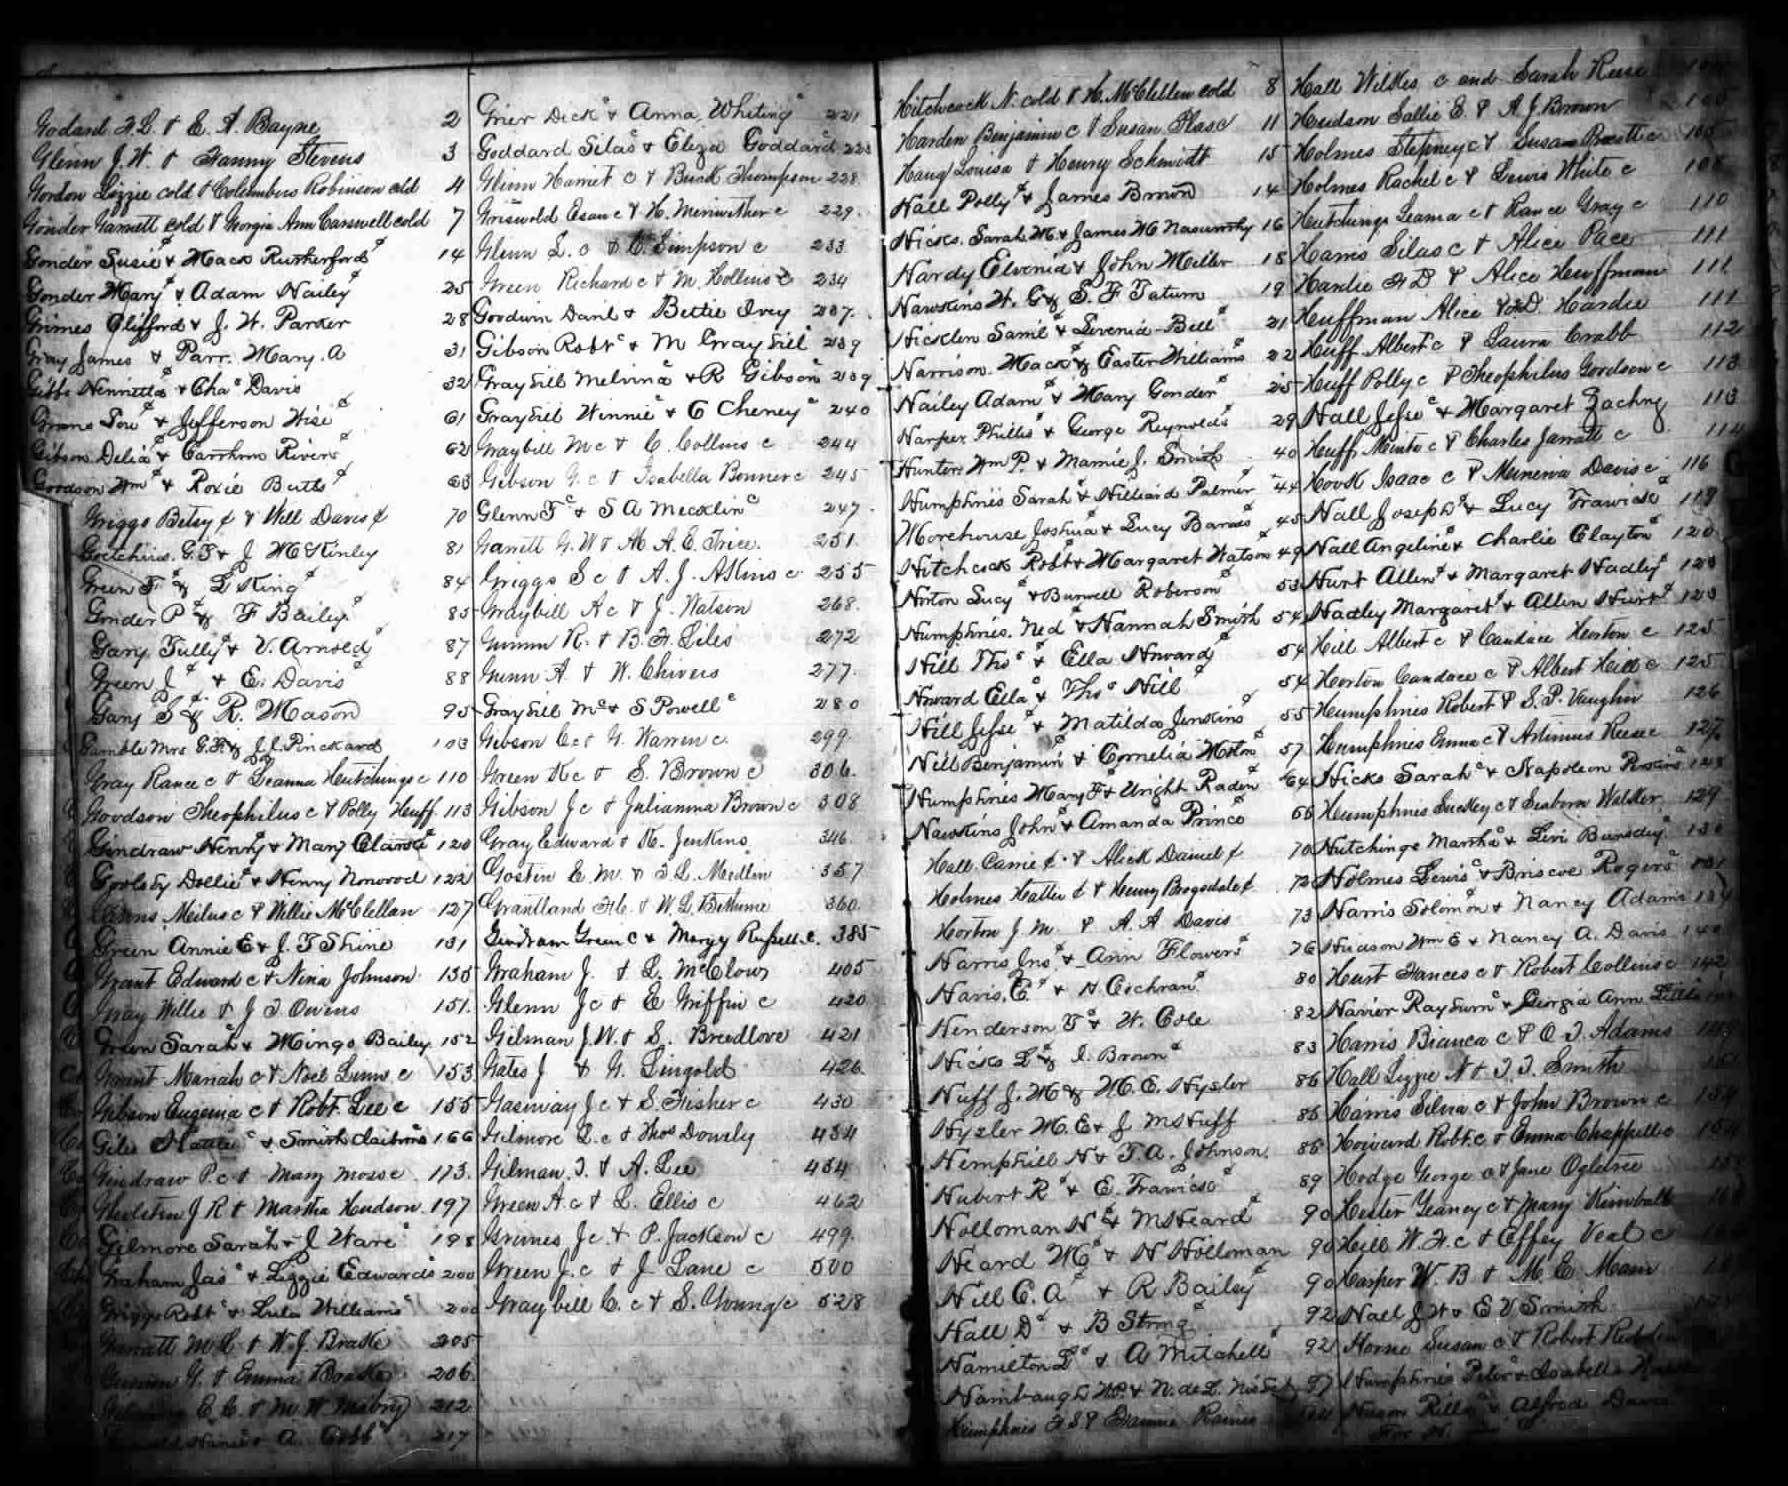 Godard F. L. & E. A. Bayne 2
Glenn J. W. & Fanny Stevens 3
Gordon Lizzie cold & Columbus Robinson cold 4
Gonder Garnett cold & Georgia Ann Carswell cold 7
Gonder Susie & Mack Rutherford ¢ 14
Gonder Mary ¢ & Adam Hailey ¢ 25
Grimes Clifford & J. W. Parker 28
Gray James & Parr. Mary. A 31
Gibbs Henrietta & Chaˢ Davis 32
Grans & Jefferson Wise ¢ 61
Gibson Delia ¢ & Rivers ¢ 62
Goodson Wm ¢ & Roxie Butts ¢ 63
Griggs Betsy ¢ & Will Davis ¢ 70
Goetchius. G. F. & J McKinley 81
Green F ¢ & L King ¢ 84
Gonder P ¢ & F Bailey ¢ 85
Gary Tully ¢ & V. Arnold ¢ 87
Green J ¢ & E. Davis ¢ 88
Gary S ¢ & R. Mason ¢ 95
Gamble Mrs G. F. & J. J. Pinckard 103
Gray Rance c & Leanna Hutchings c 110
Goodson Theophilus c & Polly Huff 113
Gindraw Henry & Mary Clark 120
Goolsby Dollie & Henry Norwood 122
Milus c & Willie McClellan 127
Green Annie E & J. T Shine 131
Grant Edward c & Nina Johnson 135
Gray Willie & J T Owens 151
Green Sarah c & Mingo Bailey 152
Grant Mariah c & Noel Linn c 153
Gibson Eugenia c & Robt. Lee c 155
Giles Hattie c & Smith 166
Gindraw P. c & Mary Moss c 173
J R & Martha Hudson 197
Gilmore Sarah & J Ware c 198
Graham Jas c & Lizzie Edwards 200
Griggs Robt c & Lula Williams c 200
Garratt M. L. & W. J. Brake 205
G. & Emma Brake 206
E. C. & M. W. Mabry 212
A. Cobb 217
Grier Dick c & Anna Whiting c 221
Goddard Silas c & Eliza Goddard c
Glenn Harriet c & Buck Thompson 228
Griswold Esau c & H. Meriwether c 229
Glenn L. c & C. Simpson c 233
Green Richard c & M. Hollins c 234
Goodwin Danl & Bettie Ivey 237
Gibson Robt c & M Graybill 239
Graybill Melvina c & R Gibson 239
Graybill Winnie c & C Cheney c 240
Graybill M c & C. Collins c 244
Gibson G. c & Isabella Bonner c 245
Glenn F c & S A Mecklin c 247
Garrett G. W & M. A. E. Trice 251
Griggs S c & A. J. Askins c 255
Graybill A c & J. Watson 268
Gumm R. & B. F. Liles 272
Gunn A & W. Chivers 277
Graybill M c & S Powell c 280
Gibson C. c & G. Warren c 299
Green K c & S. Brown c 306
Gibson J c & Julianna Brown c 308
Gray Edward & K. Jenkins 346
Gostin E. M. & F. L. Medlin 357
Grantland & W. L. Bethune 360
Gindram Green c & Margy Russell c. 385
Graham J. & L. McClow 405
Glenn J c & E Griffin c 420
Gilman J. W. & S. Breedlove 421
Gates J & G. Lingold 426
Gasaway J c & S. Fisher c 430
Gilmore L. c & Thos Dowdy 434
Gilman. T. & A. Lee 454
Green A. c & L. Ellis c 462
Grimes J c & P. Jackson c 499
Green J. c & J Lane c 500
Graybill C. c & S. Young c 528
Hitchcock N. cold & H. McClellen cold 8
Harden Benjamin c & Susan c 11
Haug Louisa & Henry Schmidt 15
Hall Polly ¢ & James Brown 14
Hicks. Sarah M. & James W 16
Hardy Elvenia & John Miller 18
Hawkins W. G & S. F Tatum 19
Hicklen Saml ¢ & Levenia Bell ¢ 21
Harrison Mack ¢ & Easter Williams ¢ 22
Hailey Adam ¢ & Mary Gonder ¢ 25
Harper Phillis ¢ & George Reynolds ¢ 29
Hunter Wm P. & Mamie J. Smith 40
Humphries Sarah ¢ & Hilliard Palmer ¢ 44
Morehouse Joshua ¢ & Lucy Barnes ¢ 45
Hitchcock Robt & Margaret Watson ¢ 49
Horton Lucy ¢ & Burwell Roberson ¢ 53
Humphries. Ned ¢ & Hannah Smith 54
Hill Thoˢ ¢ & Ella Howard ¢ 54
Howard Ella ¢ & Thoˢ Hill ¢ 54
Hill Jesse ¢ & Matilda Jenkins ¢ 55
Hill Benjamin & Cornelia Horton ¢ 57
Humphries Mary F ¢ & Wright Raden ¢ 64
Hawkins John ¢ & Amanda Prince ¢ 66
Hall. Carrie ¢ & Alick Daniel ¢ 70
Holmes Hattie ¢ & Henry Brogsdale ¢ 72
Horton J. M. & A. A. Davis 73
Harris Jno ¢ & Ann Flowers ¢ 76
Havis. E. ¢ & H Cochran ¢ 80
Henderson & W. Cole 82
Hicks L ¢ & I. Brown ¢ 83
Huff J. M & M. E. Hysler 86
Hysler M. E & J M Huff 85
Hemphill H & T. A. Johnson 86
Hubert R ¢ & E. Trawick ¢ 89
Holloman H ¢ & M Heard ¢ 90
Heard M ¢ & H Holloman 90
Hill C. A ¢ & R Bailey ¢ 90
Hall D ¢ & B Strong ¢ 92
Hamilton L ¢ & A Mitchell ¢ 92
Hambaugh 97
Humphries & Fannie Raines
Hall Wilkes c and Sarah Reese
Hudson Sallie E. & A J Brown
Holmes Stepney c & Susan
Holmes Rachel c & Lewis White c
Hutchings Leanna c & Rance Gray c 110
Harris Silas c & Alice Pace 111
Hardie F D & Alice Huffman 111
Huffman Alice & F. D. Hardie 111
Huff Albert c & Laura Crabb 112
Huff Polly c & Theophilus Goodson c 113
Hall Jesse c & Margaret Zachry 113
Huff Minto c & Charles Jarratt c 114
Hook Isaac c & Minerva Davis c 116
Hall Joseph c & Lucy Trawick c 119
Hall Angeline & Charlie Clayton c 120
Hurt Allen c & Margaret Hadley c 123
Hadley Margaret c & Allen Hurt c 123
Hill Albert c & Candace Horton c 125
Horton Candace c & Albert Hill c 125
Humphries Robert & S. P. Vaughn 126
Humphries Emma c & Artimus Reese c 127
Hicks Sarah c & Napoleon 128
Humphries Suckey c & Seaborn Walker 129
Hutchings Martha c & Levi Bunsley 130
Holmes Lewis c & Briscoe Rogers c 131
Harris Solomon & Nancy Adams 134
Hudson Wm E & Nancy A. Davis 140
Hurt Frances c & Robert Collins c 142
Havior Rayburn c & Georgia Ann Little
Harris Bianca c & O. T. Adams
Hall Lizzie N & T. J. Smith
Harris Silvia c & John Brown c
Howard Robt. c & Emma Chappell c
Hodge George c & Jane Ogletree
Hester Yeancy c & Mary Kimball
Hill W. H. c & Effey Veal c
Harper W. B & M. E. Mann
Hall J W & E V Smith
Horne Susan c & Robert
Humphries Peter c & Isabella
Rilla c & Alfred Davis
For H.